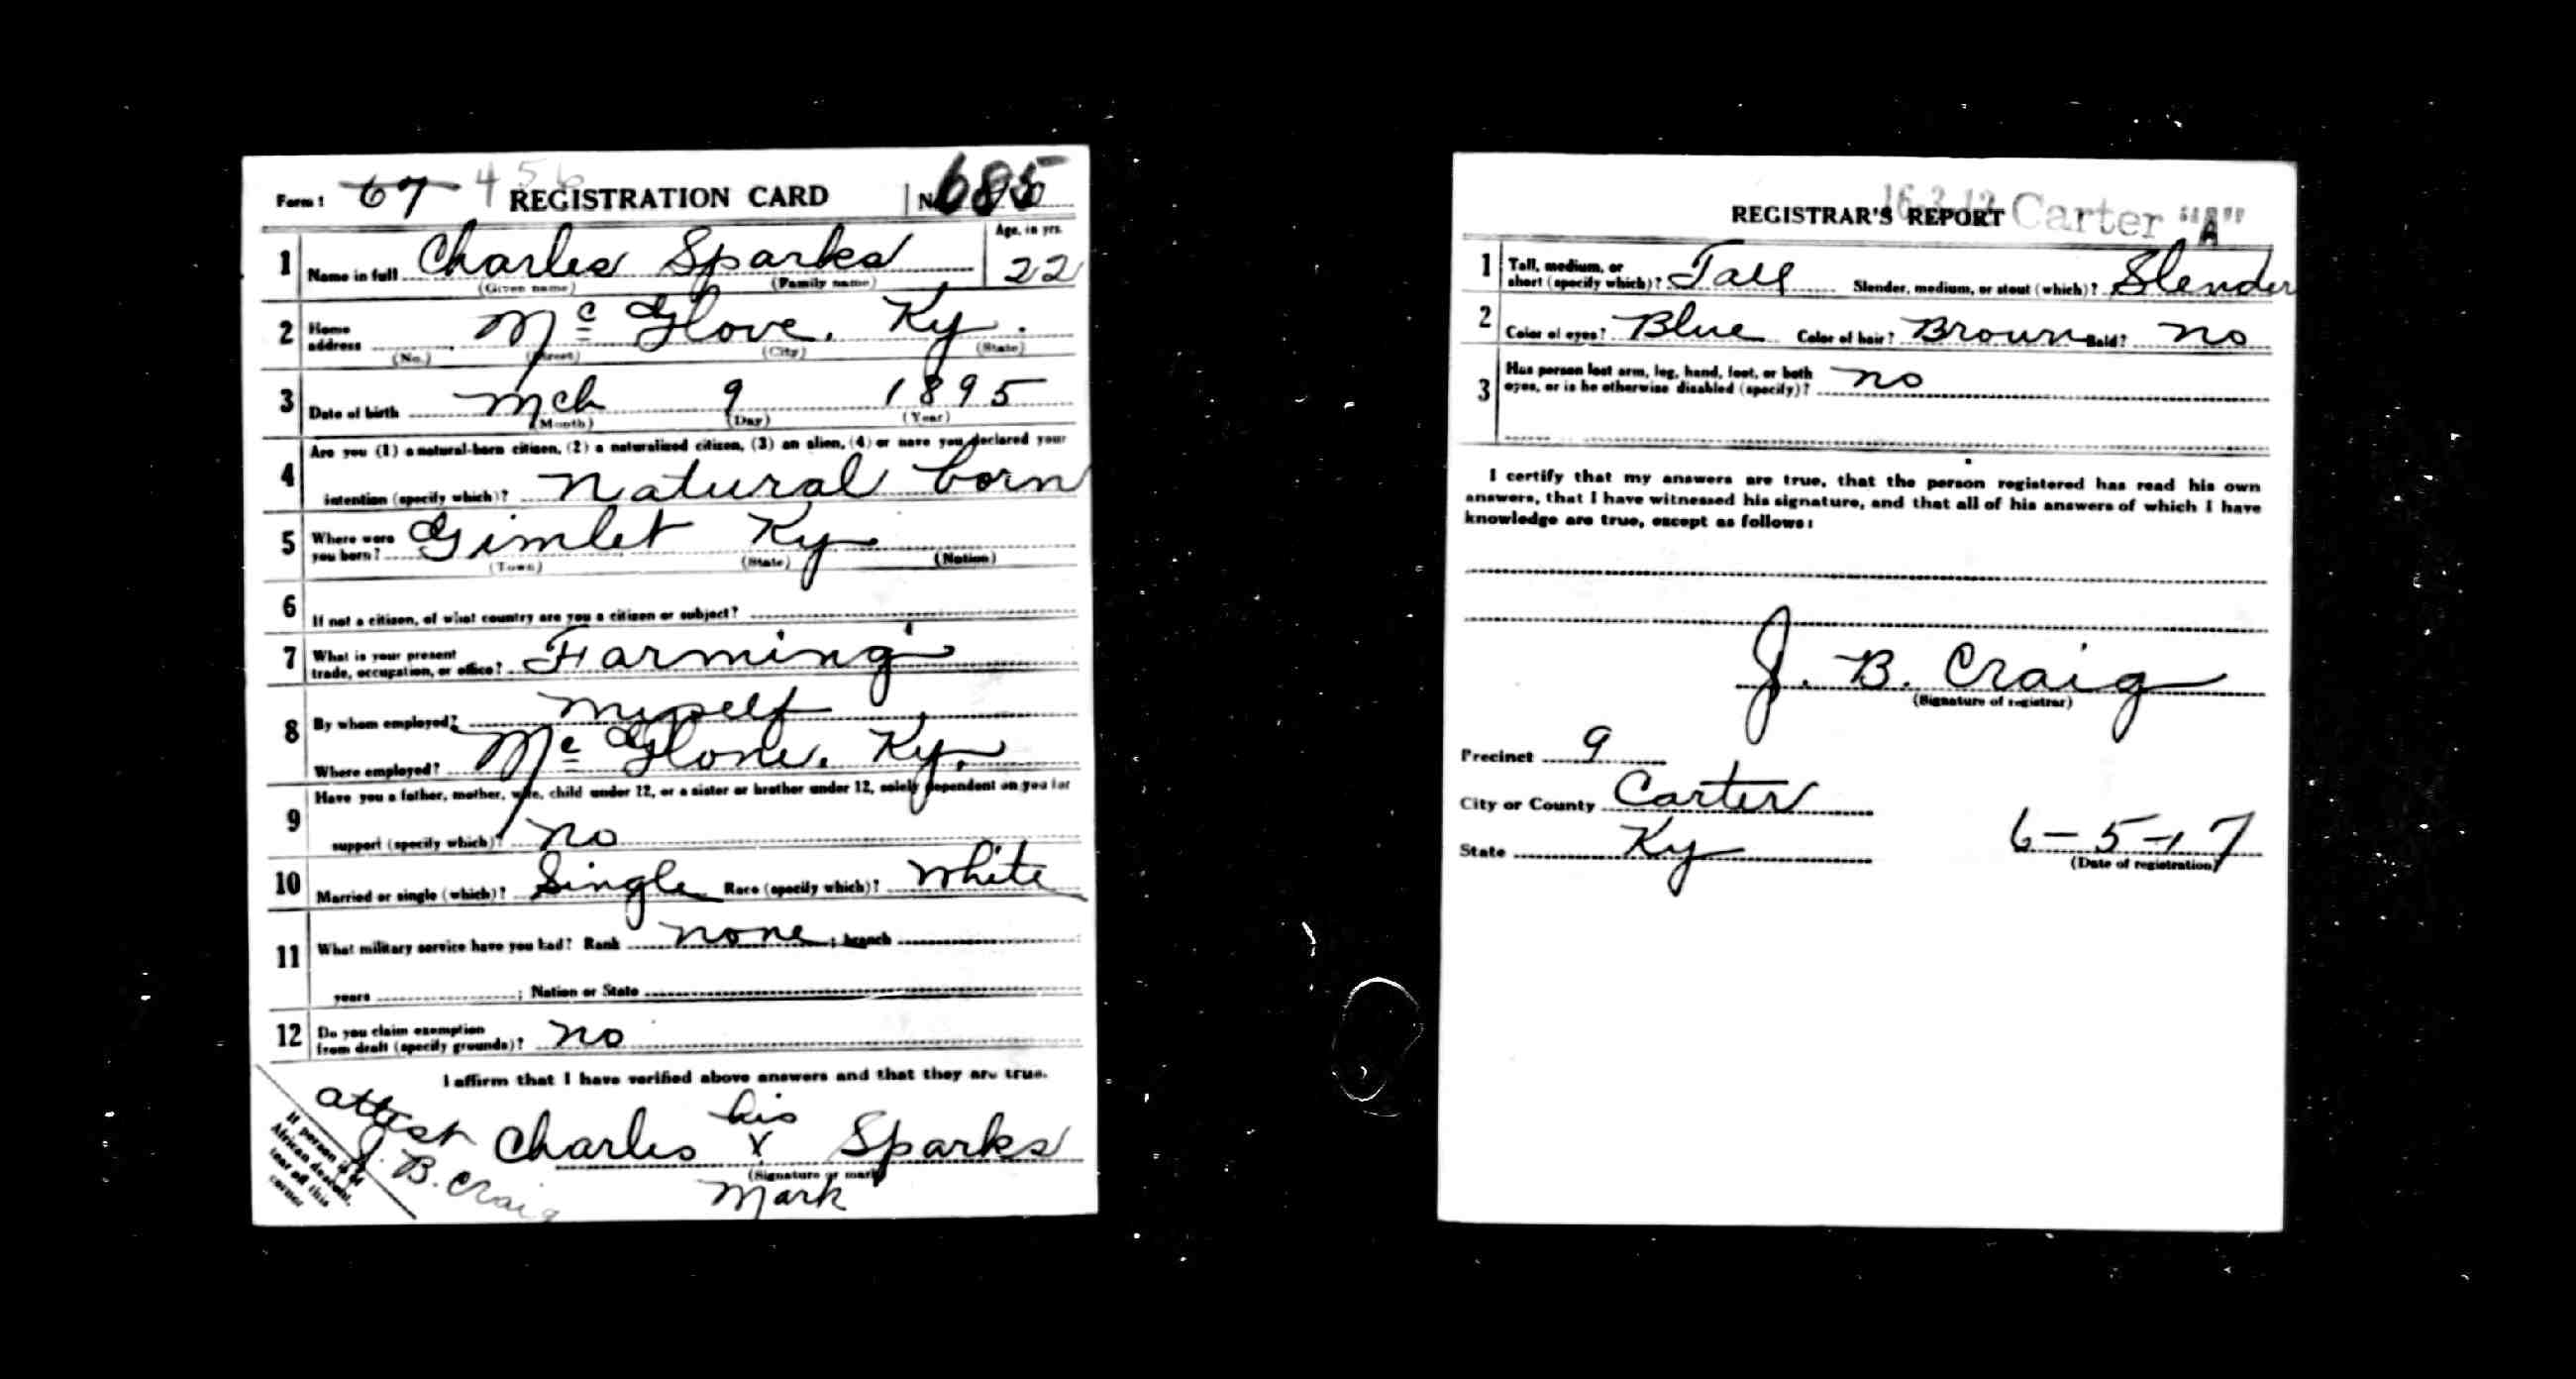 Form 1 67 456 REGISTRATION CARD No. 685
1 Name in full Charles Sparks Age, in yrs. 22
(Given name) (Family name)
2 Home address McGlove, Ky.
(No.) (Street) (City) (State)
3 Date of birth Mch 9 1895
(Month) (Day) (Year)
4 Are you (1) a natural-born citizen, (2) a naturalized citizen, (3) an alien, (4) or have you declared your
intention (specify which)? Natural born
5 Where were you born? Gimlet Ky
(Town) (State) (Nation)
6 If not a citizen, of what country are you a citizen or subject?
7 What is your present trade, occupation, or office? Farming
8 By whom employed? Myself
Where employed? McGlone, Ky.
9 Have you a father, mother, wife, child under 12, or a sister or brother under 12, solely dependent on you for
support (specify which)? No
10 Married or single (which)? Single Race (specify which)? White
11 What military service have you had? Rank None ; branch
years ; Nation or State
12 Do you claim exemption from draft (specify grounds)? No
I affirm that I have verified above answers and that they are true.
attest his
J. B. Craig Charles X Sparks
(Signature or mark)
Mark
If person is of
African descent,
tear off this
corner
REGISTRAR'S REPORT Carter "A"
1 Tall, medium, or short (specify which)? Tall Slender, medium, or stout (which)? Slender
2 Color of eyes? Blue Color of hair? Brown Bald? No
3 Has person lost arm, leg, hand, foot, or both
eyes, or is he otherwise disabled (specify)? No
I certify that my answers are true, that the person registered has read his own
answers, that I have witnessed his signature, and that all of his answers of which I have
knowledge are true, except as follows:
J. B. Craig
(Signature of registrar)
Precinct 9
City or County Carter
State Ky 6-5-17
(Date of registration)